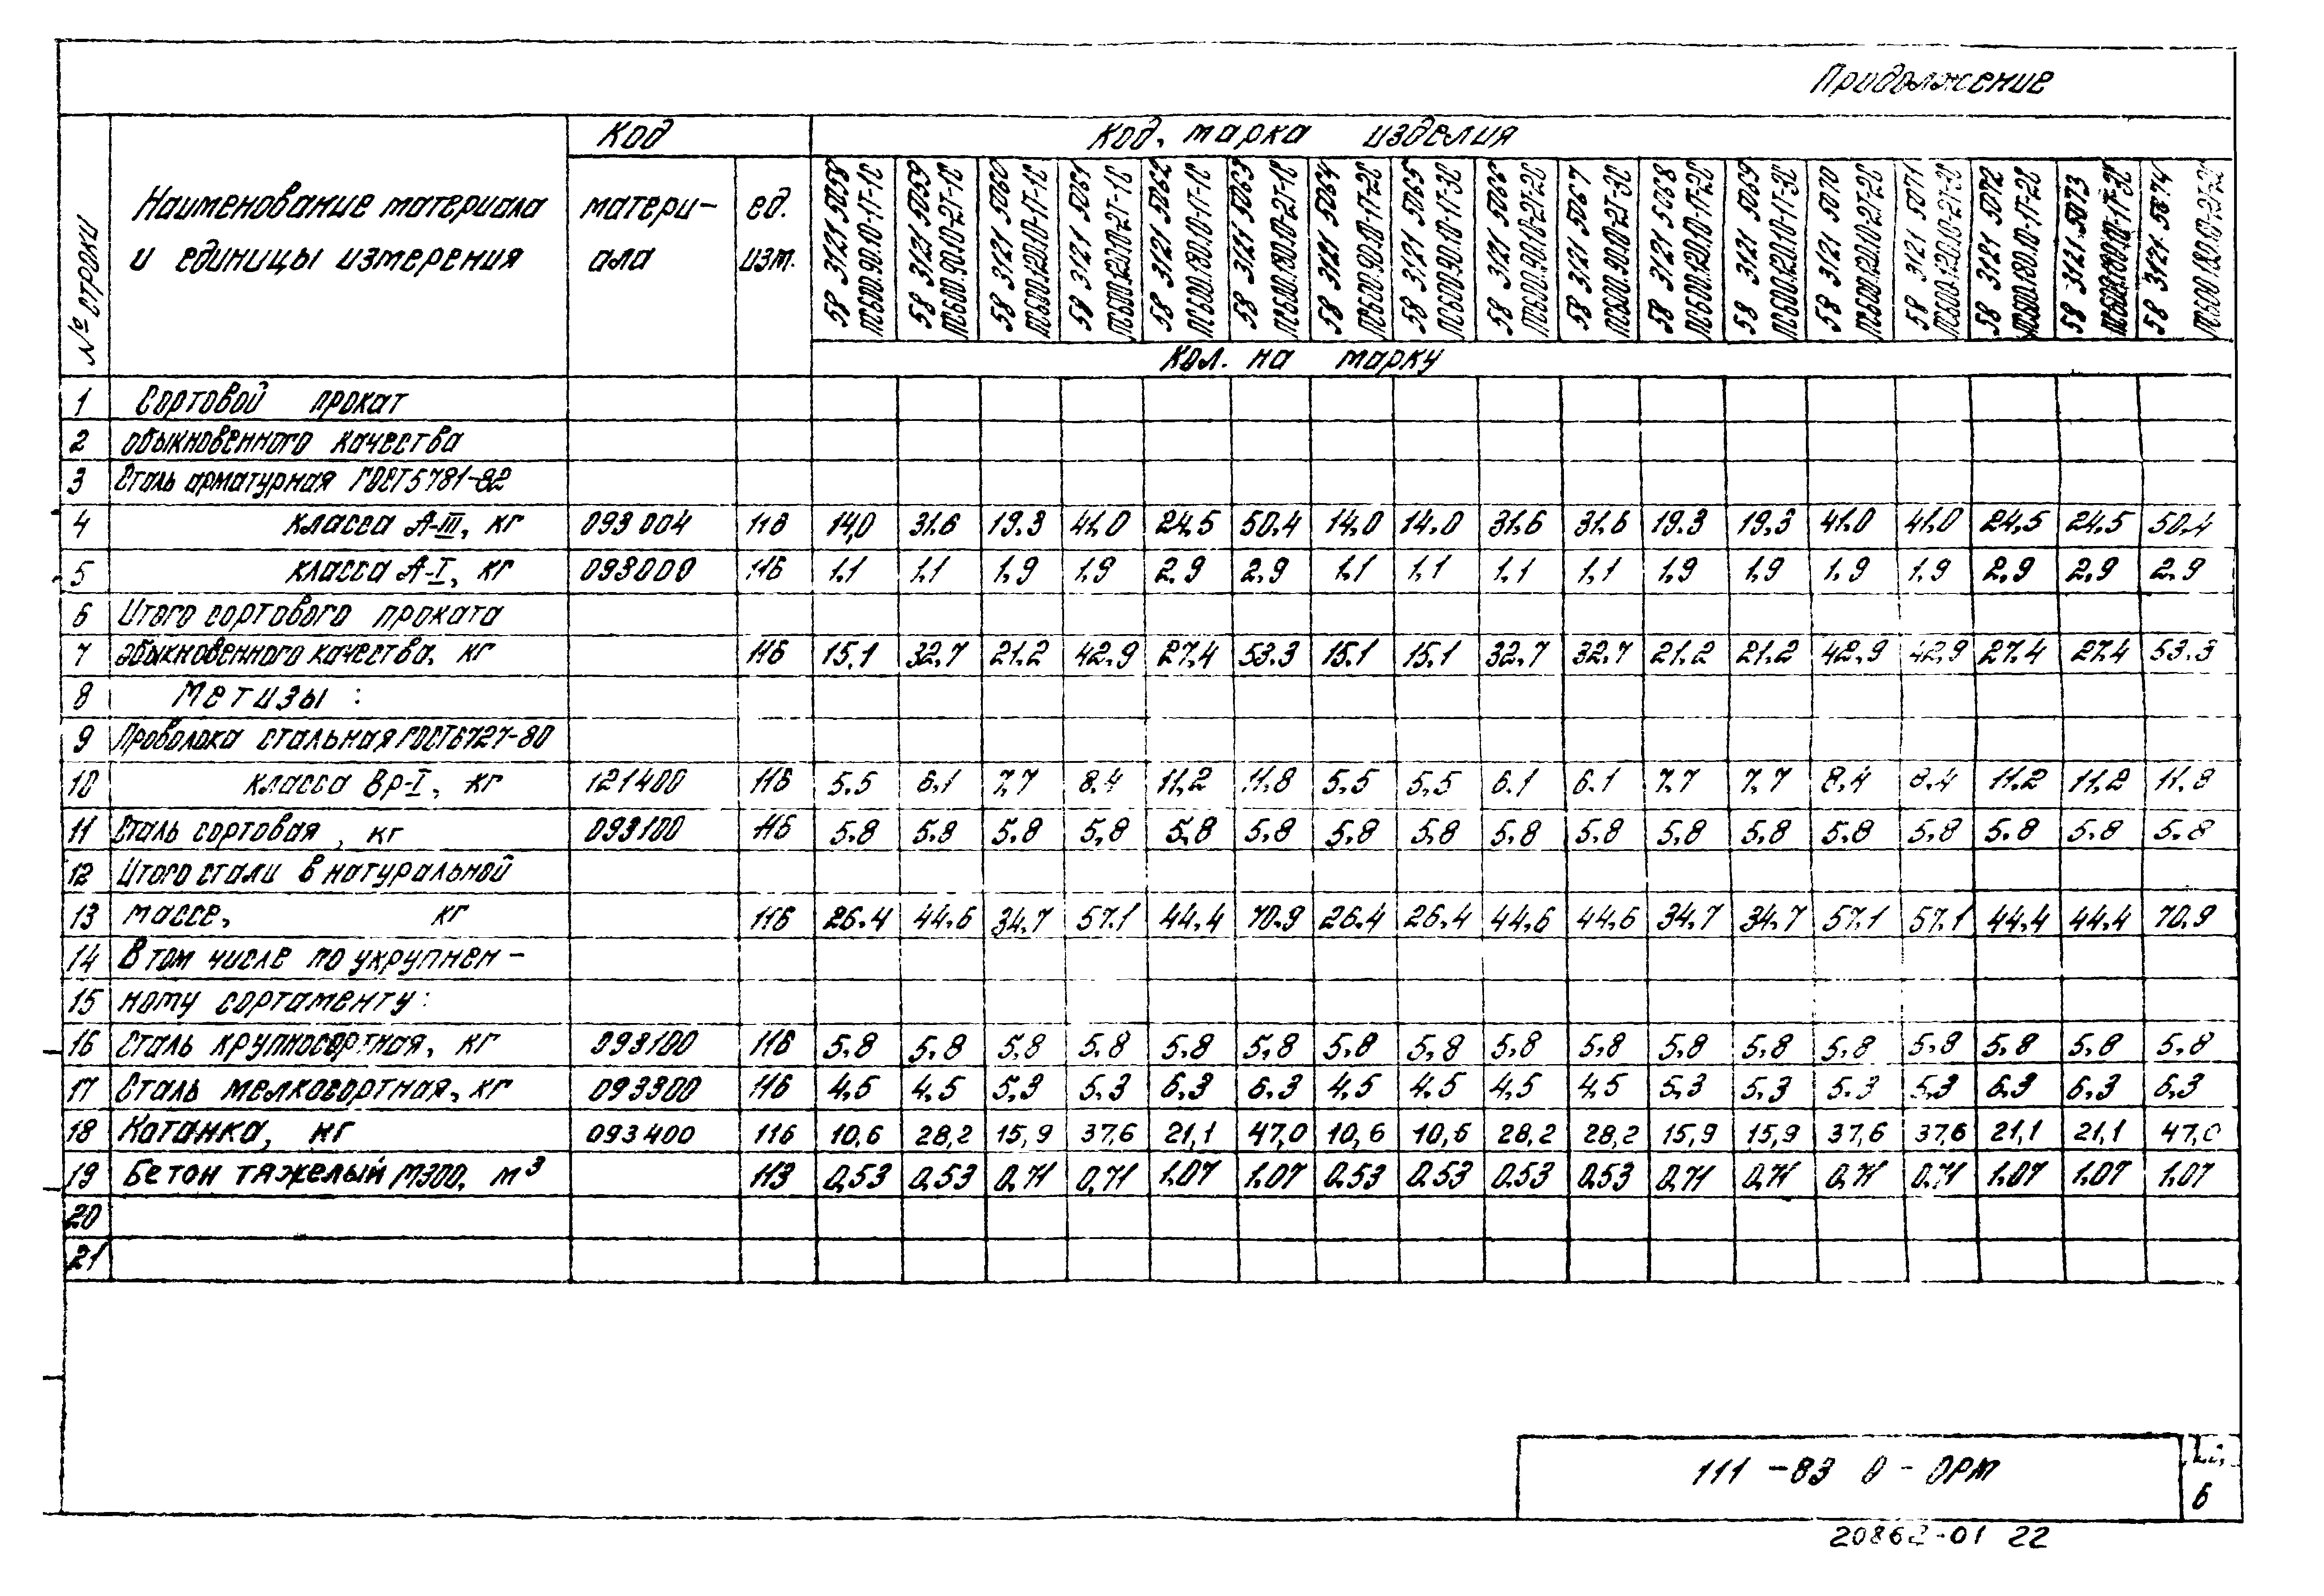 Продолжение
№ строки
Наименование материала
и единицы измерения
Код
матери-
ала
ед.
изм.
Код, марка изделия
58 3121 5058
ПС600.90.10-1Т-1С
58 3121 5059
ПС600.90.10-2Т-1С
58 3121 5060
ПС600.120.10-1Т-1С
58 3121 5061
ПС600.120.10-2Т-1С
58 3121 5062
ПС600.180.10-1Т-1С
58 3121 5063
ПС600.180.10-2Т-1С
58 3121 5064
ПС600.90.10-1Т-2С
58 3121 5065
ПС600.90.10-1Т-3С
58 3121 5066
ПС600.90.10-2Т-2С
58 3121 5067
ПС600.90.10-2Т-3С
58 3121 5068
ПС600.120.10-1Т-2С
58 3121 5069
ПС600.120.10-1Т-3С
58 3121 5070
ПС600.120.10-2Т-2С
58 3121 5071
ПС600.120.10-2Т-3С
58 3121 5072
ПС600.180.10-1Т-2С
58 3121 5073
ПС600.180.10-1Т-3С
58 3121 5074
ПС600.180.10-2Т-2С
Кол. на марку
1 Сортовой прокат
2 обыкновенного качества
3 Сталь арматурная ГОСТ 5781-82
4 класса А-III, кг 093004 116 14,0 31.6 19.3 41.0 24.5 50.4 14.0 14.0 31.6 31.6 19.3 19.3 41.0 41.0 24.5 24.5 50.4
5 класса А-I, кг 093000 116 1.1 1.1 1.9 1.9 2.9 2.9 1.1 1.1 1.1 1.1 1.9 1.9 1.9 1.9 2.9 2.9 2.9
6 Итого сортового проката
7 обыкновенного качества, кг 116 15.1 32.7 21.2 42.9 27.4 53.3 15.1 15.1 32.7 32.7 21.2 21.2 42.9 42.9 27.4 27.4 53.3
8 Метизы :
9 Проволока стальная ГОСТ 6727-80
10 класса Вр-I, кг 121400 116 5.5 6.1 7.7 8.4 11.2 11.8 5.5 5.5 6.1 6.1 7.7 7.7 8.4 8.4 11.2 11.2 11.8
11 Сталь сортовая, кг 093100 116 5.8 5.8 5.8 5.8 5.8 5.8 5.8 5.8 5.8 5.8 5.8 5.8 5.8 5.8 5.8 5.8 5.8
12 Итого стали в натуральной
13 массе, кг 116 26.4 44.6 34.7 57.1 44.4 70.9 26.4 26.4 44.6 44.6 34.7 34.7 57.1 57.1 44.4 44.4 70.9
14 В том числе по укрупнен-
15 ному сортаменту:
16 Сталь крупносортная, кг 093100 116 5.8 5.8 5.8 5.8 5.8 5.8 5.8 5.8 5.8 5.8 5.8 5.8 5.8 5.8 5.8 5.8 5.8
17 Сталь мелкосортная, кг 093300 116 4.5 4.5 5.3 5.3 6.3 6.3 4.5 4.5 4.5 4.5 5.3 5.3 5.3 5.3 6.3 6.3 6.3
18 Катанка, кг 093400 116 10,6 28,2 15,9 37,6 21,1 47,0 10,6 10,6 28,2 28,2 15,9 15,9 37,6 37,6 21,1 21,1 47,0
19 Бетон тяжелый М300, м³ 113 0.53 0.53 0.71 0.71 1.07 1.07 0.53 0.53 0.53 0.53 0.71 0.71 0.71 0.71 1.07 1.07 1.07
20
21
111-83 0-ОРМ
6
20862-01 22